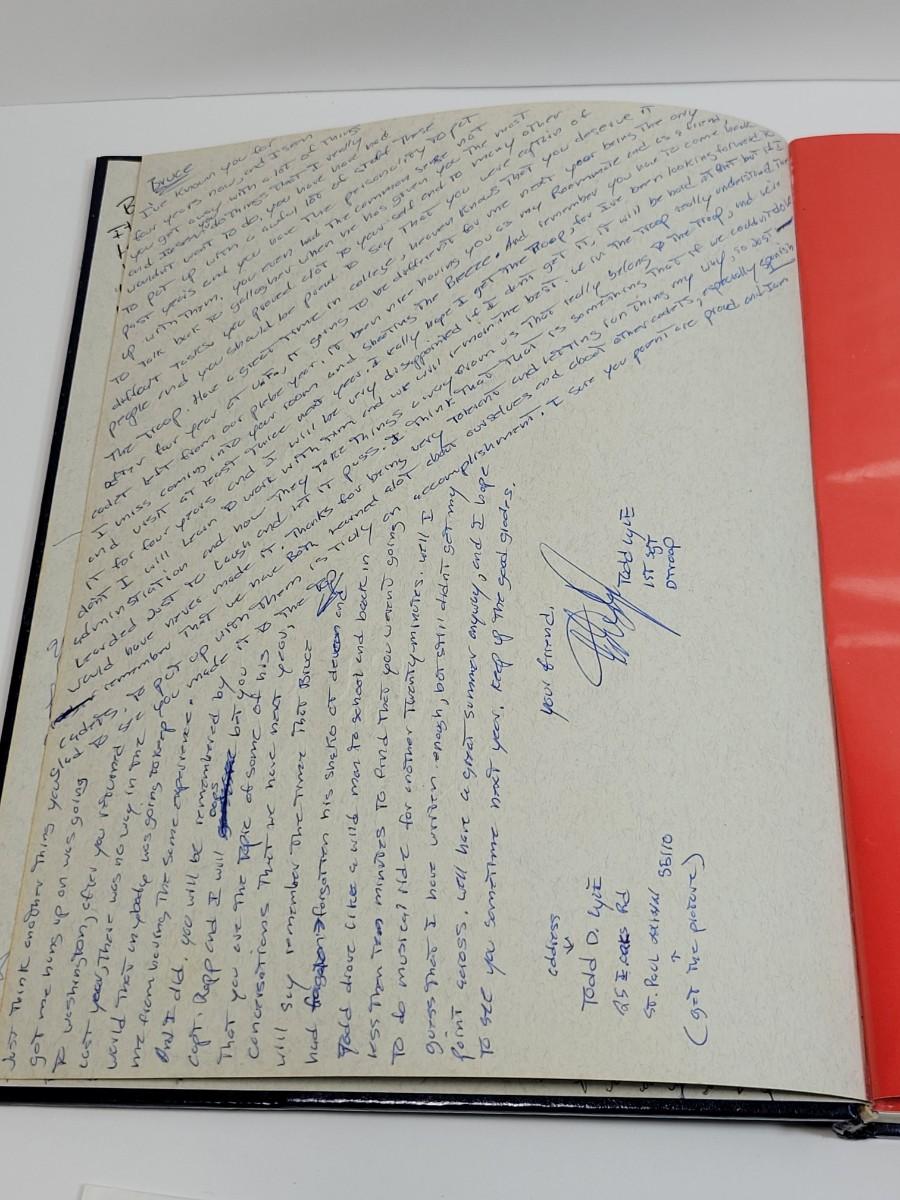 Bruce
I've known you for
four years now, and I seen
you get away with a lot of things
and I seen you do things that I really
wouldn't want to do, you have have had
to put up with a awful lot of stuff these
past years and you have the personality to get
up with them, you even had the common sense not
to talk back to gallagher when he has given you the most
difficult tasks you proved alot to your self and to many other
people and you should be proud to say that you were captain of
The Troop. Have a great time in college, heaven knows that you deserve it
after four year at it's going to be different for me next year being the only
cadet left from our plebe year. it been nice having you as my Roommate and as a friend,
I miss coming into your room and shooting the Breeze. And remember you have to come back
and visit at least twice next year. I really hope I get the Troop, for I've been looking forward to
it for four years and I will be very disappointed if I dont get it, it will be hard at first but if I
dont I will learn to work with Tim and we will remain the best. we in the Troop really understand the
administration and how they take things away from us that really belong to the Troop, and we
Learded Just to Laugh and let it pass. I think that That is something that if we couldn't do we
would have never made it. Thanks for being very tolerant and letting run thing my way, so Just
remember that we have Both learned alot about ourselves and about other cadets, especially Spanish
cadets, to put up with them is trully accomplishment. I sure you parent are proud and I am
Just think another thing you
got me hung up on was going
To Washington, after you returned
last year, there was no way in the
world that anybody was going to keep
me from having the same experience
And I did. you will be remembered by
Capt. Rapp and I will
That you are the topic of some of his
conversations that we have next year, the
will say remember the time that Bruce
had forgotten his shako at devon and
Todd drove like a wild man to school and back in
less then ten minutes to find that you werent going
to do musical ride for another twenty-minutes. well I
guess that I have written enough, but still didnt get my
point across. well have a great summer anyway, and I hope
to see you sometime next year. keep up the good grades.
your friend,
Todd Lytle
1st Sgt
D troop
address
Todd D. Lytle
25 E oaks Rd
St. Paul minn 55110
(get the picture)